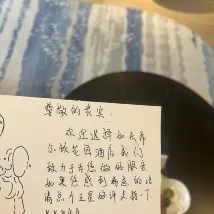 尊敬的贵宾:
欢迎选择如家希
尔顿花园酒店我们
致力于为您做好服务
如果您感到满意的话
请点个五星好评支持一下